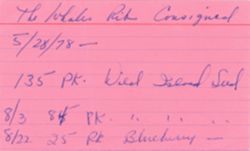 The Whales Rib Consigned
5/28/78 —
135 PK. Wild Island Seed
8/3 84 PK. " " "
8/22 25 PK Blueberry —